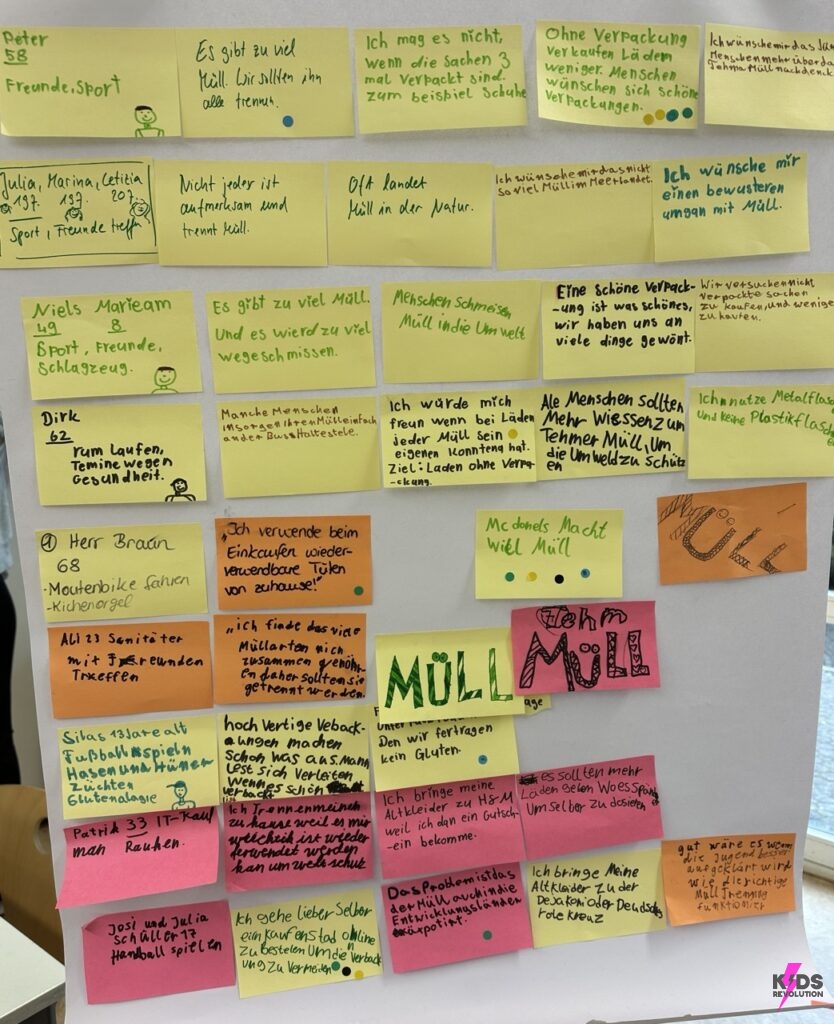 Peter
58
Freunde, Sport
Es gibt zu viel
Müll. Wir sollten ihn
alle trennen.
Ich mag es nicht,
wenn die Sachen 3
mal Verpackt sind.
zum beispiel Schuhe
Ohne Verpackung
verkaufen Läden
weniger. Menschen
wünschen sich schöne
Verpackungen.
Ich wünsche mir das
Menschen mehr über da
Tehma Müll nachdenk
Julia, Marina, Letitia
197. 197. 207.
Sport, Freunde treffen
Nicht jeder ist
aufmerksam und
trennt Müll.
Oft landet
Müll in der Natur.
Ich wünsche mir das nicht
so viel Müll im Meer landet.
Ich wünsche mir
einen bewusteren
umgan mit Müll.
Niels Marieam
49 8
Sport, Freunde,
Schlagzeug.
Es gibt zu viel Müll.
Und es wierd zu viel
wegeschmissen.
Menschen Schmeisen
Müll in die Umwelt
Eine schöne Verpack-
-ung ist was schönes,
wir haben uns an
viele dinge gewönt.
Wir versuchen nicht
verpackte sachen
zu kaufen, und wenige
zu kaufen.
Dirk
62
rum laufen,
Temine wegen
Gesundheit.
Manche Menschen
insorgen ihren Müll einfach
an der Buss Haltestele.
Ich würde mich
freun wenn bei Läden
jeder Müll sein
eigenen Konnteng hat.
Ziel: Laden ohne Verpa-
-ckung.
Ale Menschen sollten
Mehr Wiessen zum
Tehmer Müll, Um
die Umweld zu Schütz
en
Ich nutze Metalflas
und keine Plastikflasch
1 Herr Braun
68
-Moutenbike fahren
-Kichenorgel
"Ich verwende beim
Einkaufen wieder-
verwendbare Tüten
von zuhause!"
Mc donels Macht
will Müll
MÜLL
Ali 23 Sanitäter
mit Freunden
Treffen
"ich finde das viele
Müllarten nich
zusammen gehör-
en daher sollten sie
getrennt werden.
MÜLL
Tehm
MÜLL
Silas 13 Jare alt
Fußball spieln
Hasen und Hüner
Züchten
Glutenalagie
hoch Vertige Veback-
ungen machen
Schon was aus. Mann
lest sich Verleiten
Wenn es schön
verbacht
Den wir fertragen
kein Gluten.
Patrik 33 IT-Kauf
man Rauhen.
Ich Trennen meinen
zu hause weil es mir
wichtich ist wieder
ferwendet werden
kan umwelt schutz
Ich bringe meine
Altkleider zu H&M
weil ich dan ein Gutsch-
-ein bekomme.
es sollten mehr
Läden geben
Um selber zu dosieren
Josi und Julia
Schüller 17
Handball spielen
Ich gehe lieber Selber
einkaufen stad online
zu bestelen Um die Verback
ung zu Vermeiden
Das Problem ist das
der Müll auch in die
Entwicklungsländen
expotirt.
Ich bringe Meine
Altkleider zu der
Dejakoni oder Deudschs
rote kreuz
gut wäre es wenn
die Jugend besser
aufgeklärt wird
wie die richtige
Mull trennung
funktionier
KIDS
REVOLUTION